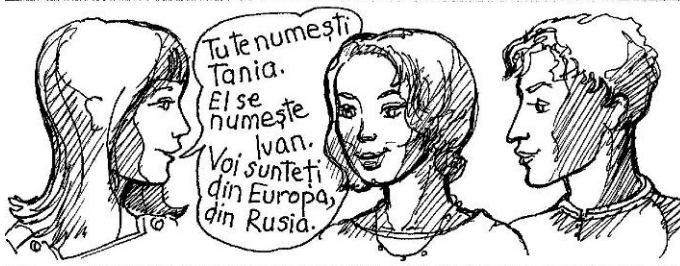 Tu te numești
Tania.
El se
numește
Ivan.
Voi sunteți
din Europa,
din Rusia.